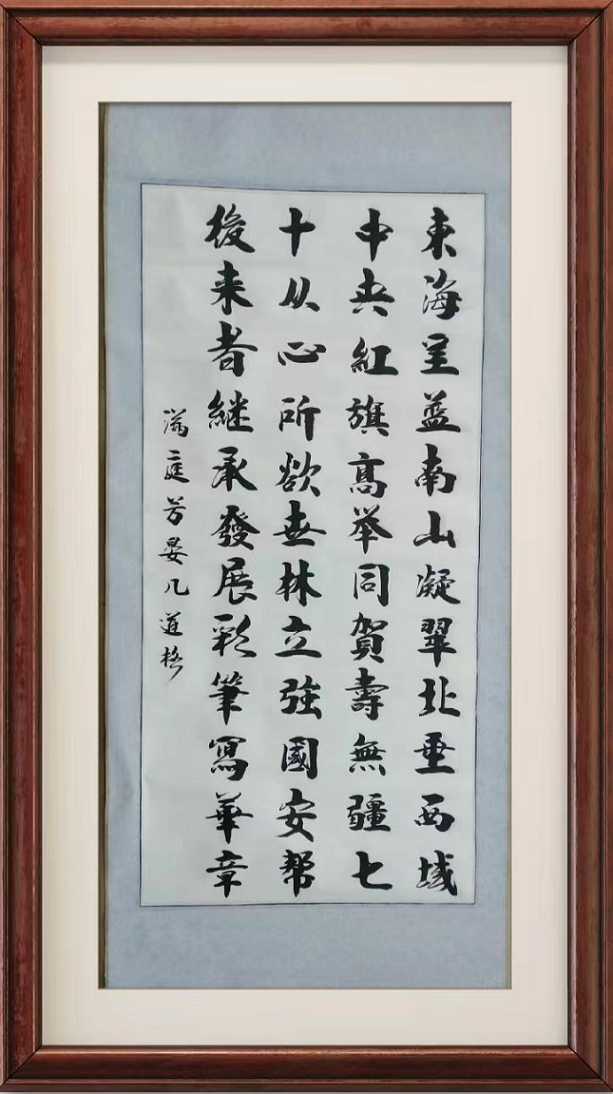 東海呈蓝南山凝翠北垂西域
中央紅旗高举同賀壽無疆七
十从心所欲世林立強國安帮
後来者継承發展彩筆寫華章
满庭芳晏几道格